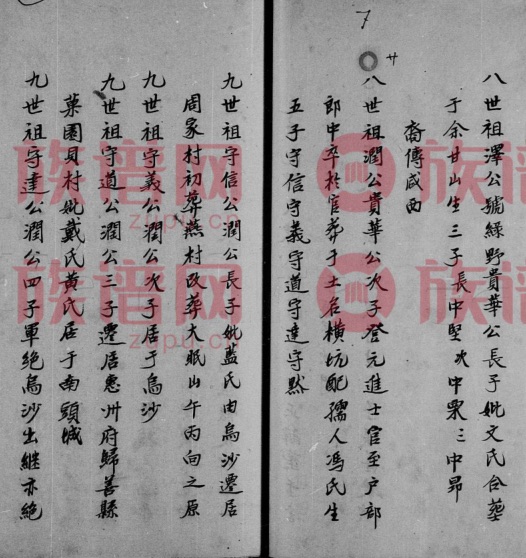 八世祖澤公號綠野貴華公長子妣文氏合葬
于余甘山生三子長中堅次中衆三中昴
裔傳咸西
廿
八世祖潤公貴華公次子登元進士官至户部
郎中卒於官葬于土名橫坑配孺人馮氏生
五子守信守義守道守達守默
九世祖守信公潤公長子妣藍氏由烏沙遷居
周家村初葬燕村改葬大眠山午丙向之原
九世祖守義公潤公次子居于烏沙
九世祖守道公潤公三子遷居惠州府歸善縣
菓園貝村妣戴氏黄氏居于南頭城
九世祖守達公潤公四子軍絕烏沙出継亦絕
族谱网
zupu.cn
族谱网
zupu.cn